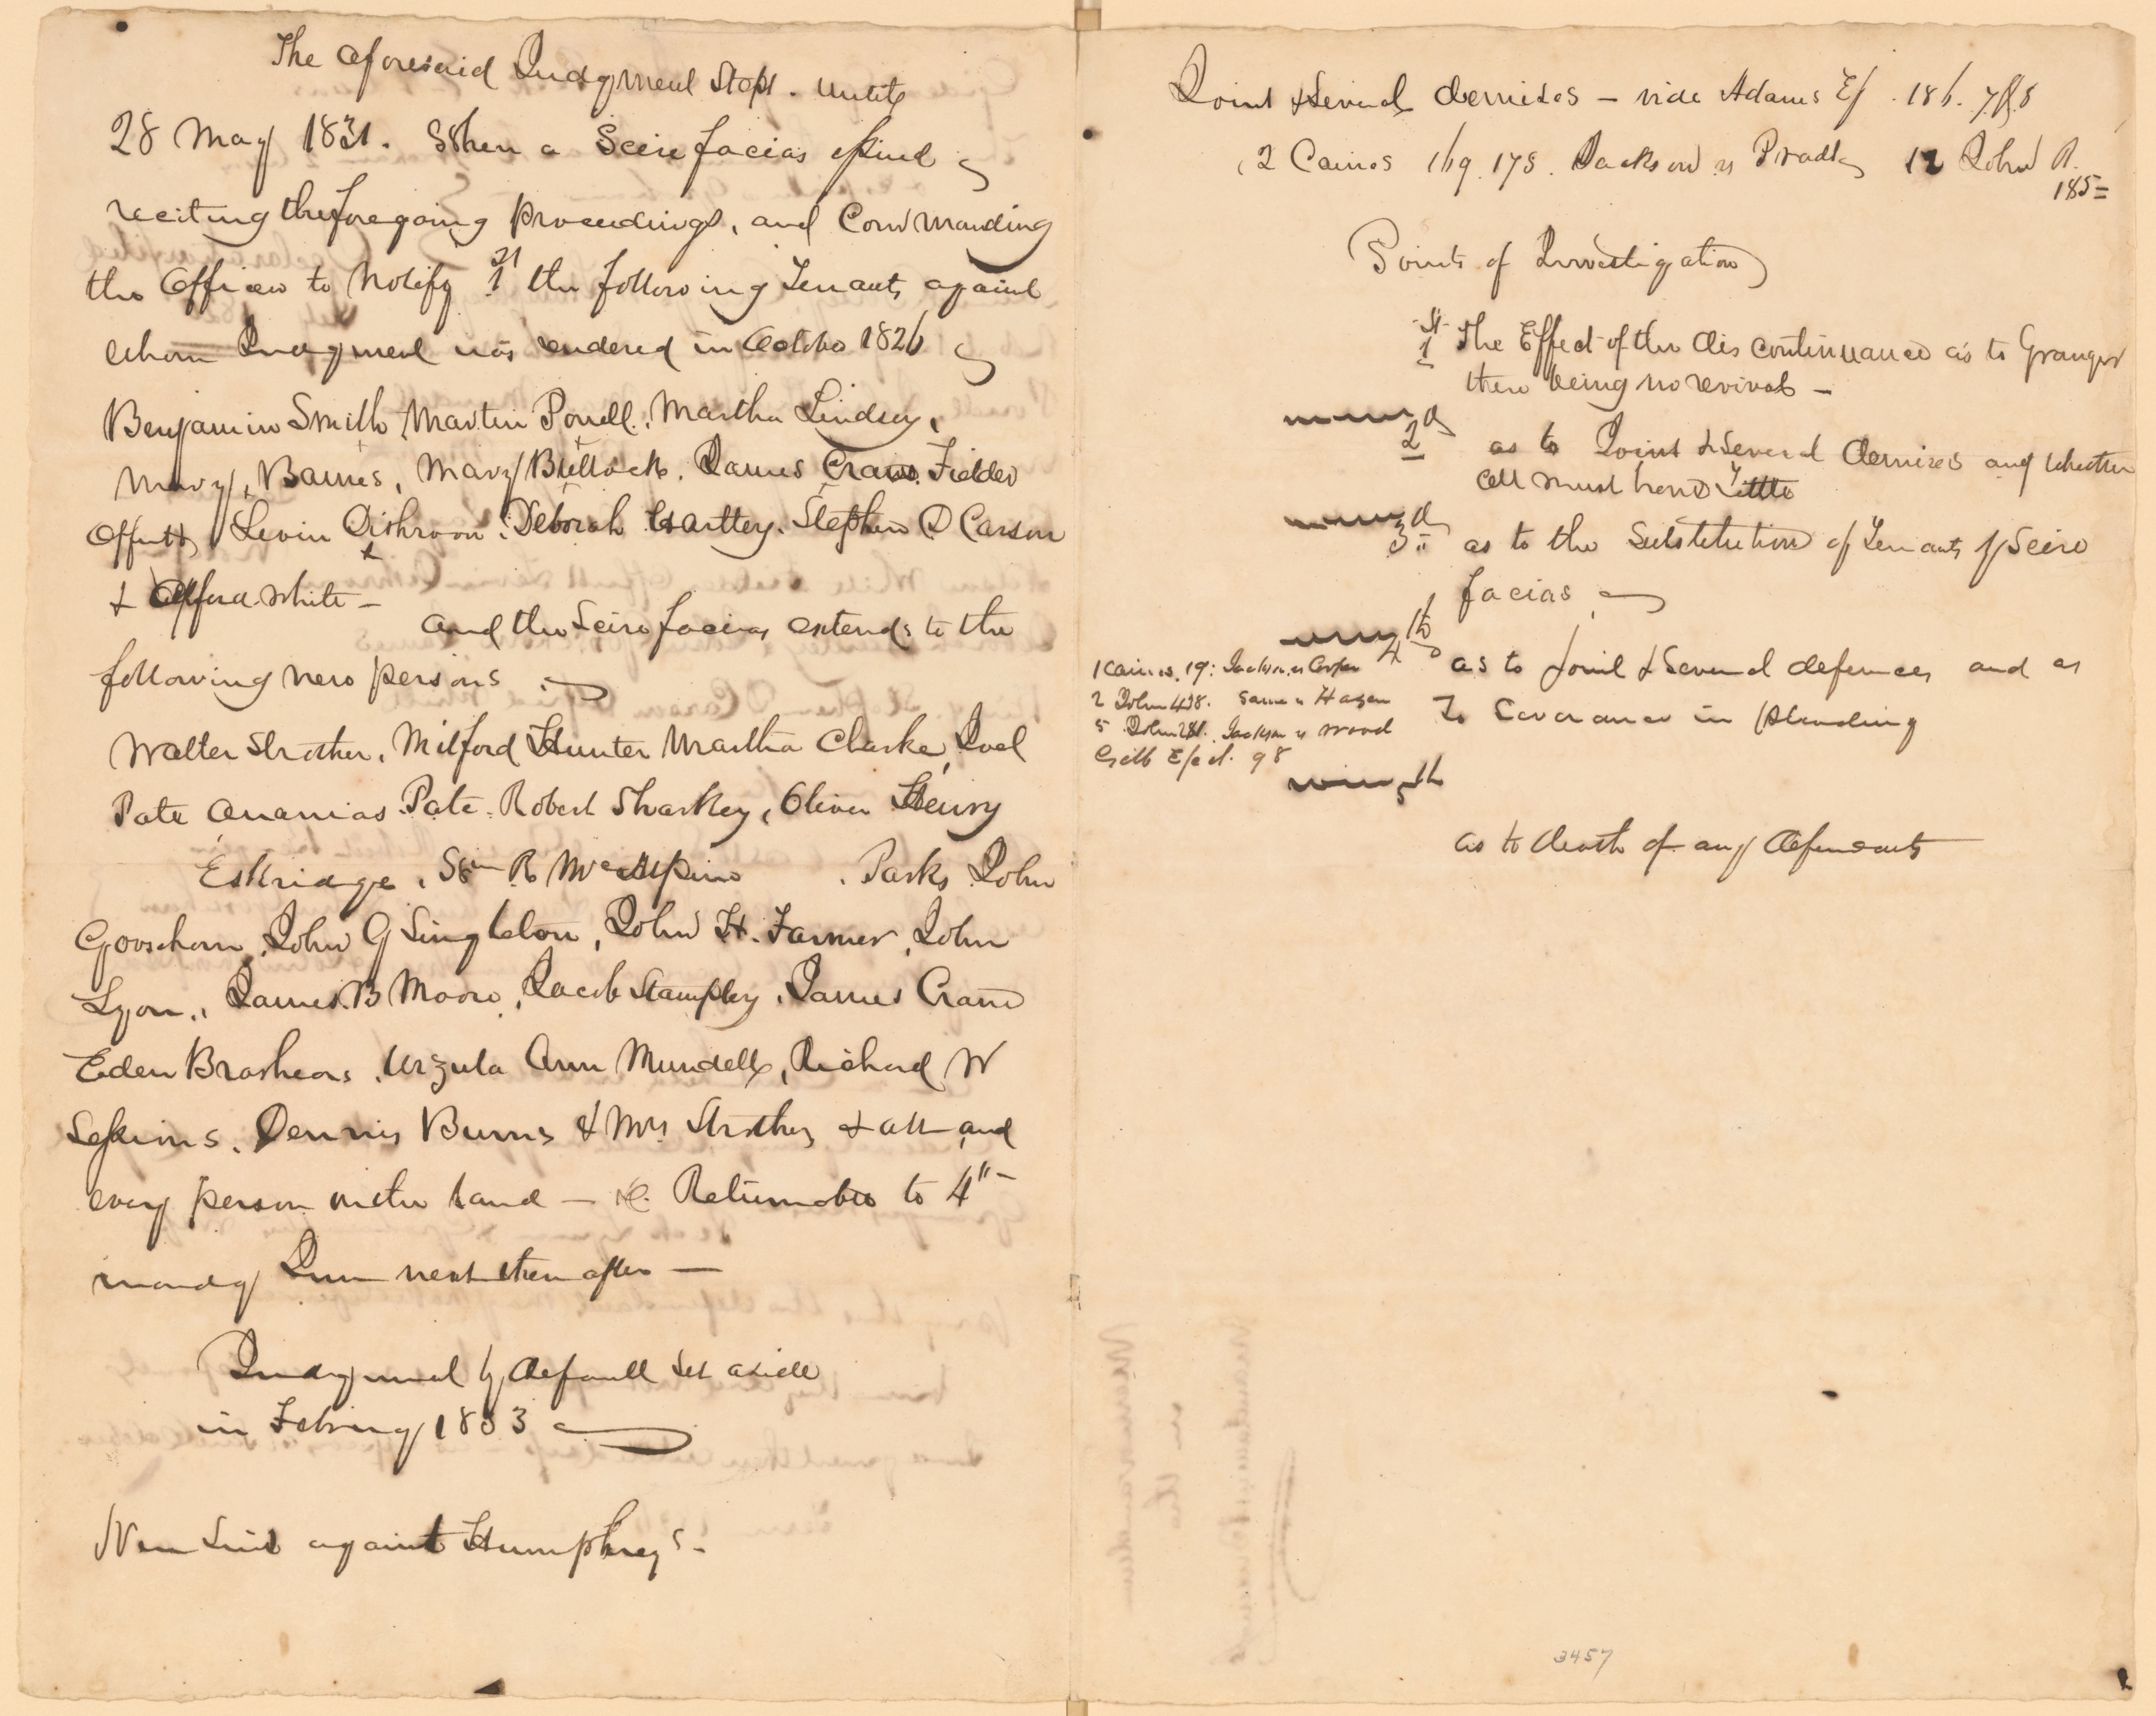 The aforesaid Judgment Stopt. until
28 May 1831. When a Scire facias issued
reciting the foregoing proceedings, and Commanding
the Officer to Notify 1st the following Tenants against
whom Judgment was rendered in October 1826
Benjamin Smith, Martin Powell, Martha Lindsey,
Mary Barnes, Mary Bullock, James Crane, Fielder
Offutt, Levin Dishroon, Deborah Hartley, Stephen D Carson
& Alford White –
and the Scire facias extends to the
following new persons
Walter Strother, Milford Hunter Martha Clarke, Joel
Pate Ananias Pate, Robert Sharkey, Oliver Henry
Eskridge, Wm R McAlpine . Parks John
Gooschorn, John G Singleton, John H. Farmer, John
Lyon, James B Moore, Jacob Stampley, James Crane
Eden Brashears, Urzula Ann Mundell, Richard W
Sessions, Dennis Burns & Mrs Strother & all and
every person on the land – &c. Returnable to 4th
monday June next then after —
Judgment by default set aside
in February 1833
New Suit against Humphreys –
Joint & Several demises – vide Adams Ej. 186. 7 & 8
2 Caines 169. 178. Jackson vs Bradt 12 John R.
185
Points of Investigation
1st The Effect of the discontinuance as to Granger
there being no revival –
2d as to Joint & Several demises and whether
all must have Title
3d as to the Substitution of Tenants by Scire
facias
4th as to Joint & Several defences and as
to Severance in pleading
1 Caines. 19: Jackson vs Cooper
2 John 438. Same vs Hagen
5 John 281. Jackson vs Wood
Gilb Eject. 98
5th
as to death of any defendants
3457